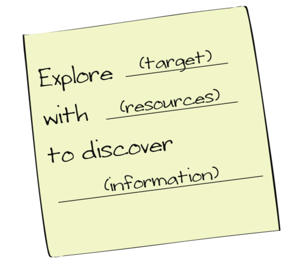 Explore (target)
with (resources)
to discover
(information)